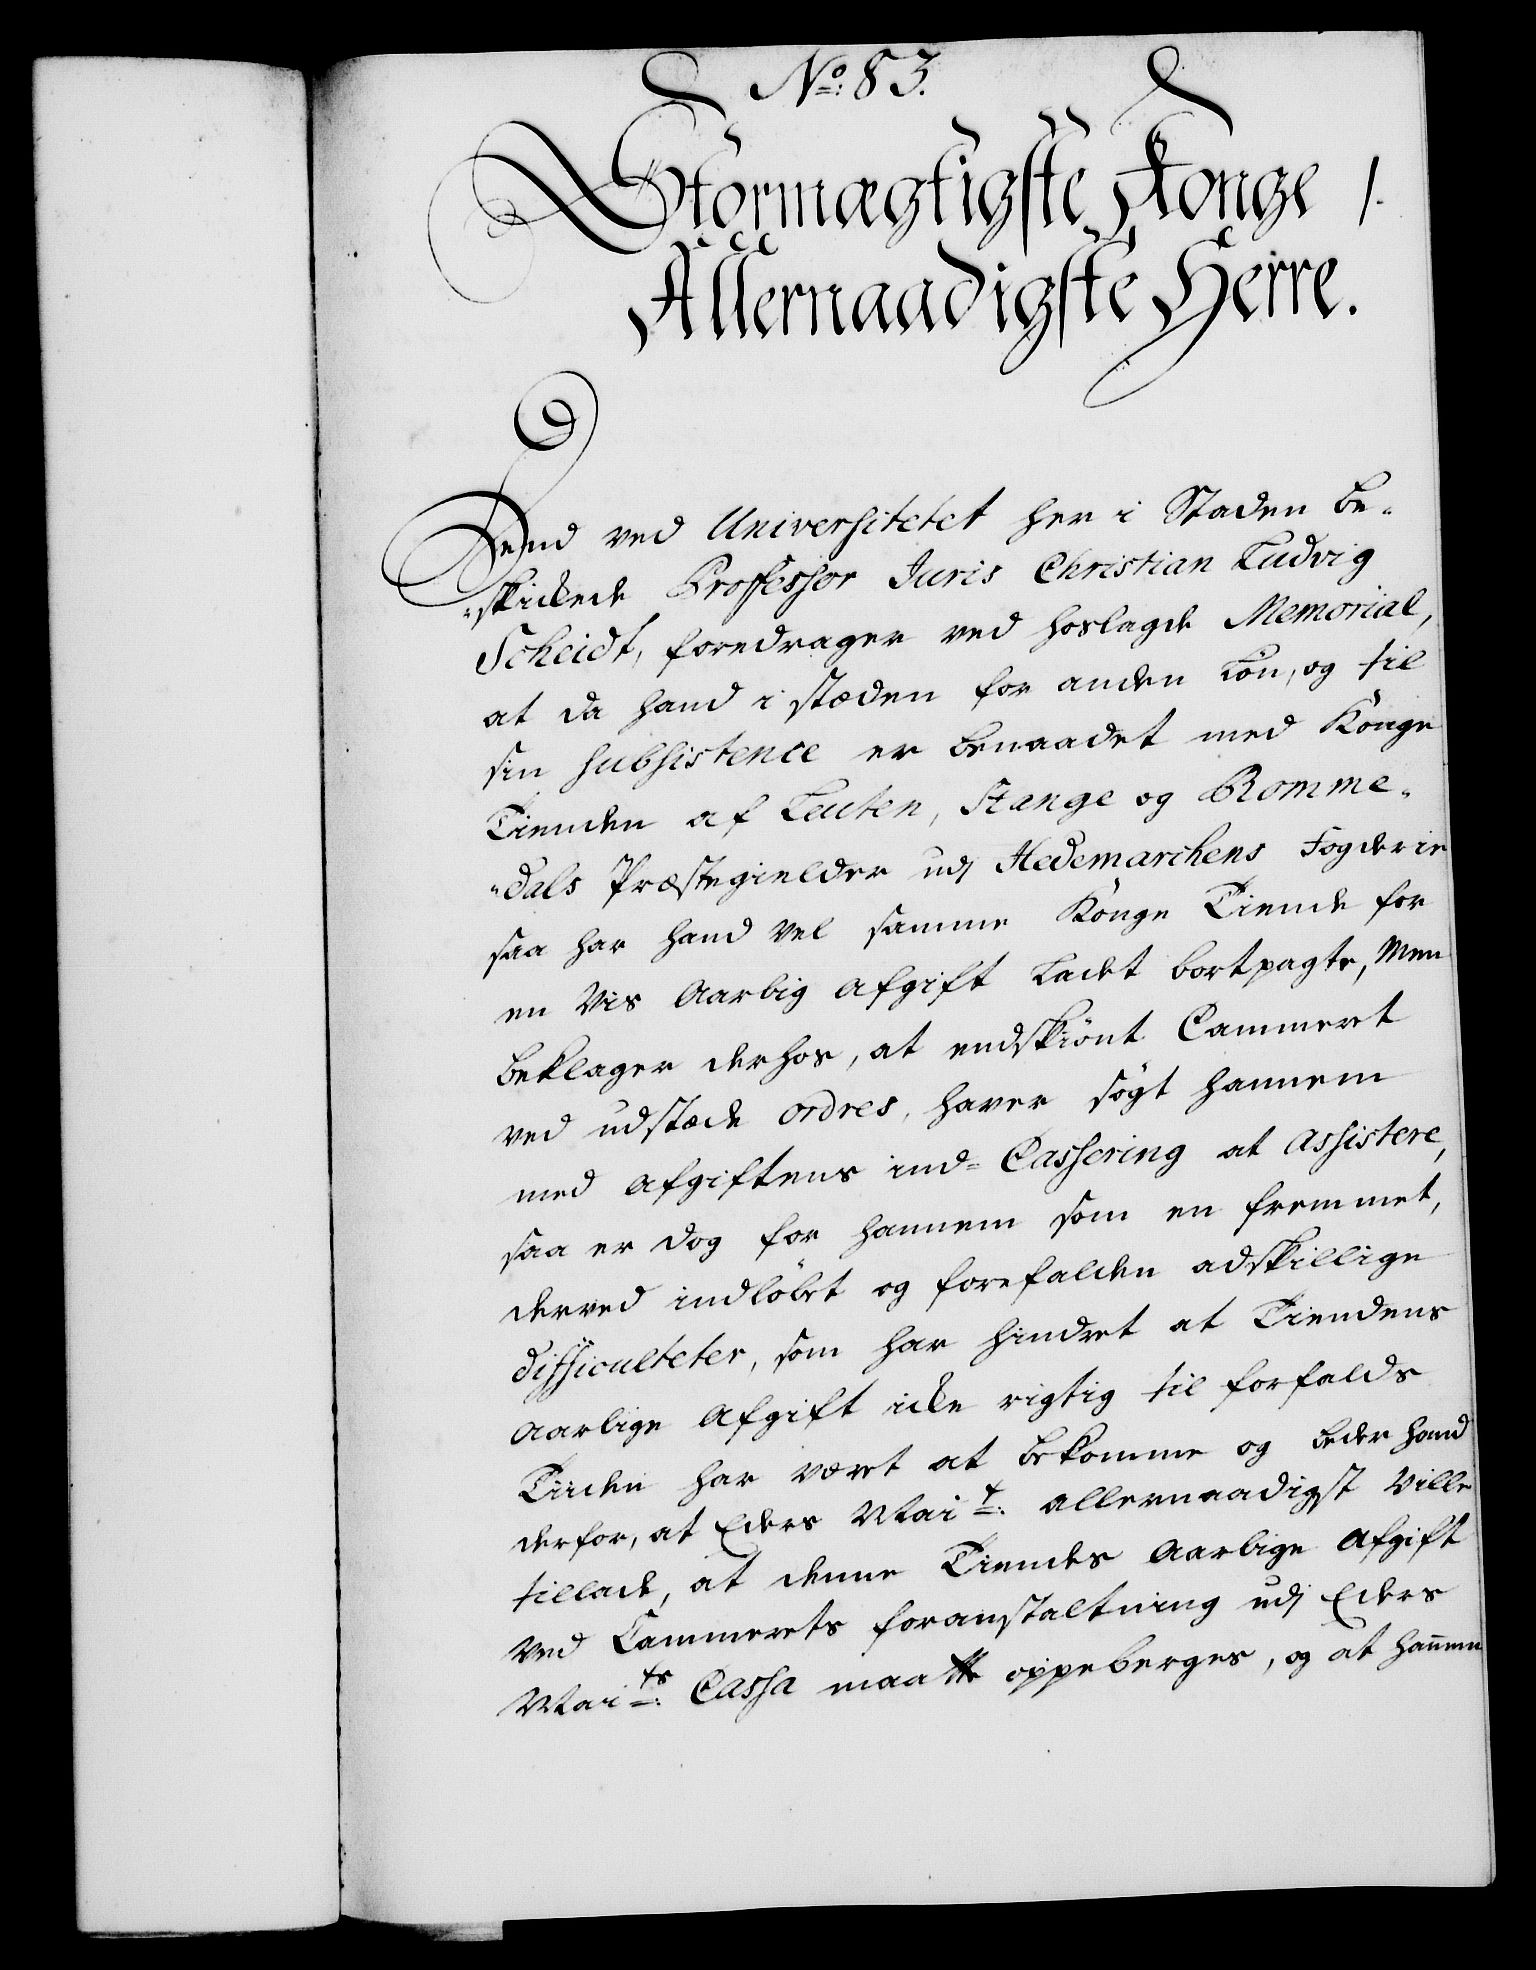 No: 83.
Stormægtigste Konge /.
Allernaadigste Herre.
Dend ved Universitetet her i Staden be-
-skickede Professor Juris Christian Ludvig
Scheidt, foredrager ved hoslagde Memorial,
at da hand i stæden for anden Løn, og til
sin subsistence er benaadet med Konge
Tienden af Leuten, Stange og Romme-
-dals Præstegielder udj Hedemarchens Fogderie
saa har hand vel samme Konge Tiende for
en vis Aarlig Afgift ladet bortpagte, Men
beklager derhos, at endskiønt Cammeret
ved udstæde ordres, haver søgt hannem
med Afgiftens ind-Cassering at assistere,
saa er dog for hannem som en fremmet,
derved indløbet og forefalden adskillige
difficulteter, som har hindret at Tiendens
Aarlige Afgift icke rigtig til forfalds
Tiiden har været at bekomme og beder hand
derfor, at Eders Mait: allernaadigst ville
tillade, at denne Tiendes Aarlige Afgift
ved Cammerets foranstaltning udj Eders
Maits: Cassa maatte oppeberges, og at hannem